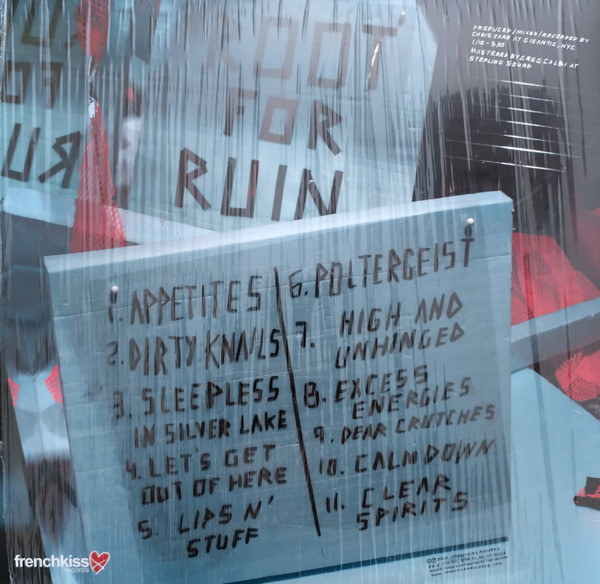 PRODUCED/MIXED/RECORDED BY
CHRIS ZANE AT GIGANTIC, NYC
MASTERED BY GREG CALBI AT
STERLING SOUND
ROOT
FOR
RUIN
1. APPETITES
2. DIRTY KNNLS
3. SLEEPLESS
IN SILVER LAKE
4. LET'S GET
OUT OF HERE
5. LIPS N'
STUFF
6. POLTERGEIST
7. HIGH AND
UNHINGED
8. EXCESS
ENERGIES
9. DEAR CRUTCHES
10. CALM DOWN
11. CLEAR
SPIRITS
frenchkiss
records